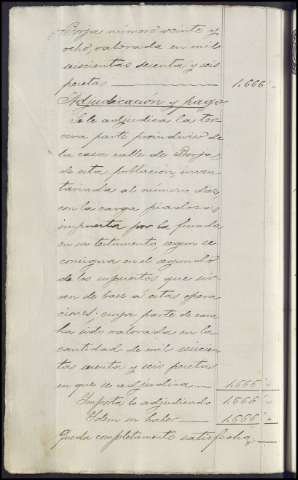 Borja número veinte y
ocho, valorada en mil
seiscientas sesenta y seis
pesetas 1,666 "
Adjudicación y pago
Se le adjudica la ter
cera parte proindiviso de
la casa calle de Borja
de esta población, inven
tariada al número dos,
con la carga piadosa
impuesta por la finada
en su testamento, segun se
consigna en el segundo
de los supuestos que sir
ven de base a estas opera
ciones: cuya parte de casa
ha sido valorada en la
cantidad de mil seiscien
tas sesenta y seis pesetas
en que se adjudica 1,666 "
Importa lo adjudicado 1,666 "
Idem su haber 1,666 "
Queda completamente satisfecha